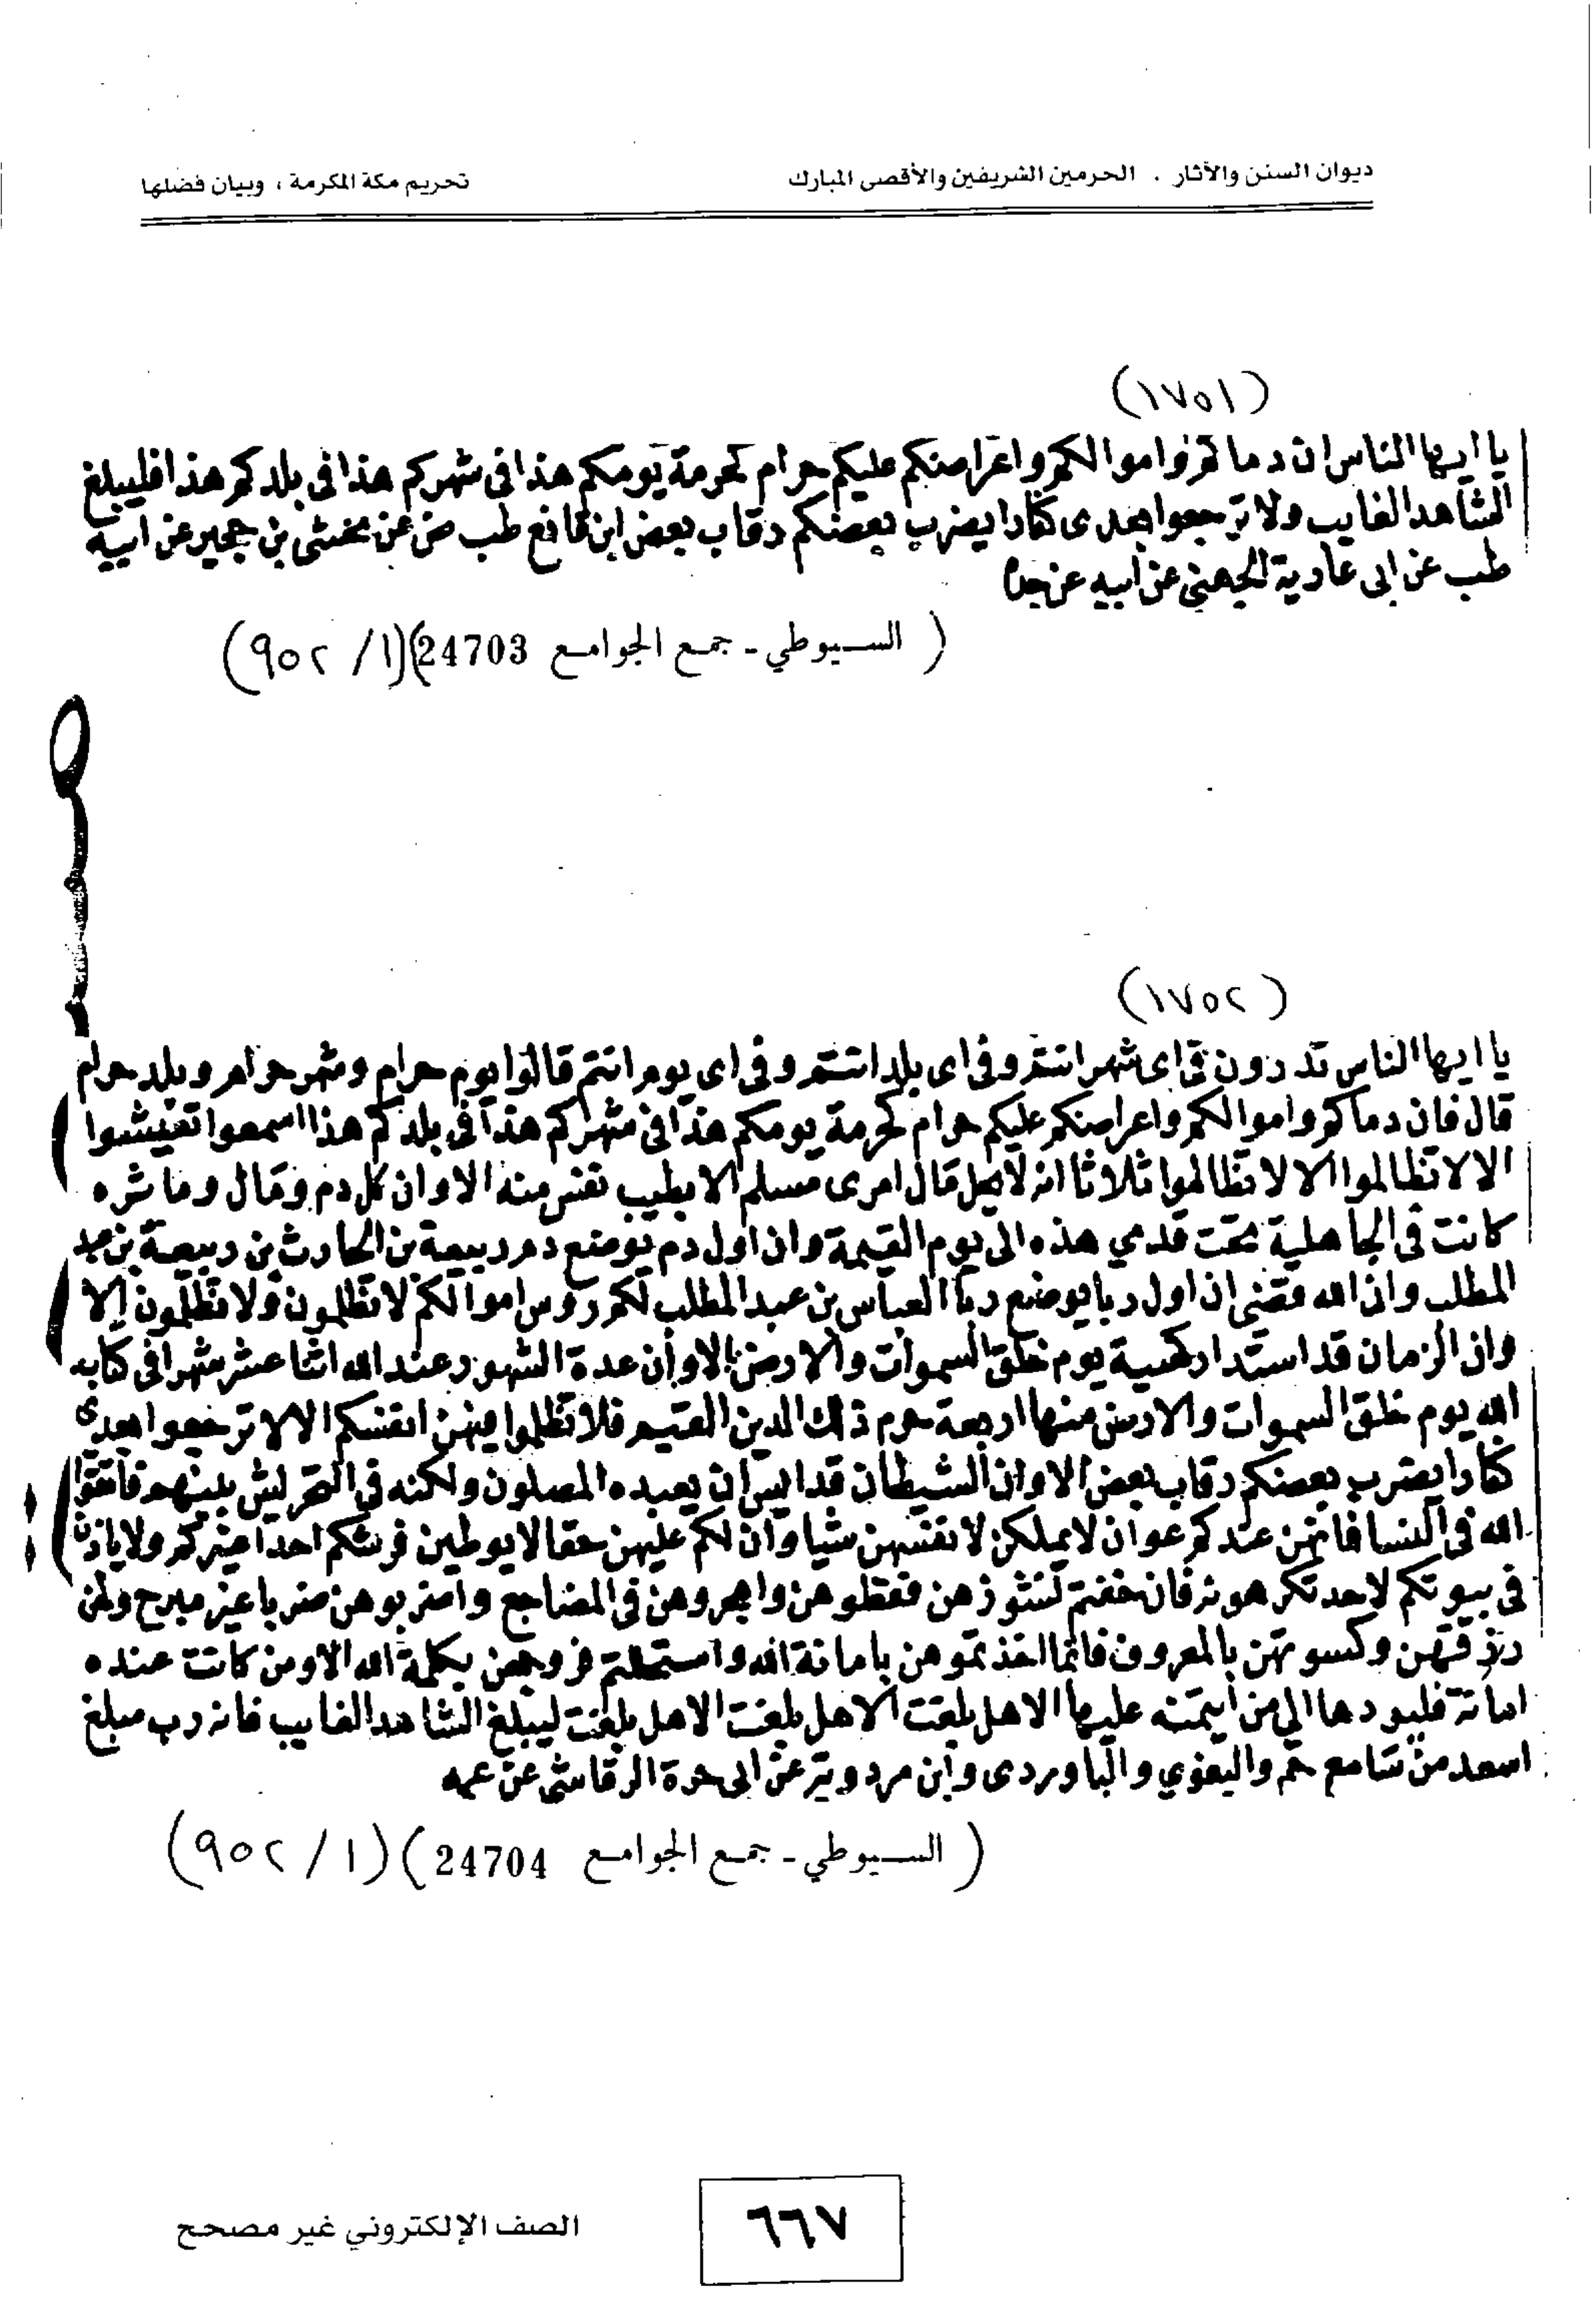 ديوان السنن والآثار . الحرمين الشريفين والأقصى المبارك
تحريم مكة المكرمة ، وبيان فضلها
(١٧٥١)
يا ايها الناس ان دماكم واموالكم واعراضكم عليكم حرام كحرمة يومكم هذا في شهركم هذا في بلدكم هذا فليبلغ
الشاهد الغايب ولا ترجعوا بعدى كفارا يضرب بعضكم رقاب بعض ابن قانع طب ض عن مخشى بن حجير عن ابيه
طب عن ابى غادية الجهني عن ابيه عن جده
( السيوطي - جمع الجوامع 24703)(١/ ٩٥٢)
(١٧٥٢)
يا ايها الناس تدرون في اى شهر انتم وفى اى بلد انتم وفى اى يوم انتم قالوا يوم حرام وشهر حرام وبلد حرام
قال فان دماكم واموالكم واعراضكم عليكم حرام كحرمة يومكم هذا في شهركم هذا في بلدكم هذا اسمعوا تعيشوا
الا لا تظالموا الا لا تظالموا ثلاثا انه لا يحل مال امرى مسلم الا بطيب نفس منه الا وان كل دم ومال وماثره
كانت في الجاهلية تحت قدمي هذه الى يوم القيمة وان اول دم يوضع دم ربيعة بن الحارث بن ربيعة بن عبد
المطلب وان الله قضى ان اول ربا يوضع ربا العباس بن عبد المطلب لكم روس اموالكم لا تظلمون ولا تظلمون الا
وان الزمان قد استدار كهيية يوم خلق السموات والارض الا وان عدة الشهور عند الله اثنا عشر شهرا في كتاب
الله يوم خلق السموات والارض منها اربعة حرم ذلك الدين القيم فلا تظلموا فيهن انفسكم الا لا ترجعوا بعدى
كفارا يضرب بعضكم رقاب بعض الا وان الشيطان قد ايس ان يعبده المصلون ولكنه في التحريش بينهم فاتقوا
الله في النسا فانهن عندكم عوان لا يملكن لانفسهن شيا وان لكم عليهن حقا لا يوطين فرشكم احدا غيركم ولا ياذن
في بيوتكم لاحد تكرهونه فان خفتم نشوزهن فعظوهن واهجروهن في المضاجع واضربوهن ضربا غير مبرح ولهن
رزقهن وكسوتهن بالمعروف فانما اخذتموهن بامانة الله واستحللتم فروجهن بكلمة الله الا ومن كانت عنده
امانة فليودها الى من ايتمنه عليها الا هل بلغت الا هل بلغت الا هل بلغت ليبلغ الشاهد الغايب فانه رب مبلغ
اسعد من سامع حم والبغوي والباوردى وابن مردويه عن ابى حرة الرقاشى عن عمه
( السيوطي - جمع الجوامع 24704 ) (١ / ٩٥٢)
٦٦٧
الصف الإلكتروني غير مصحح